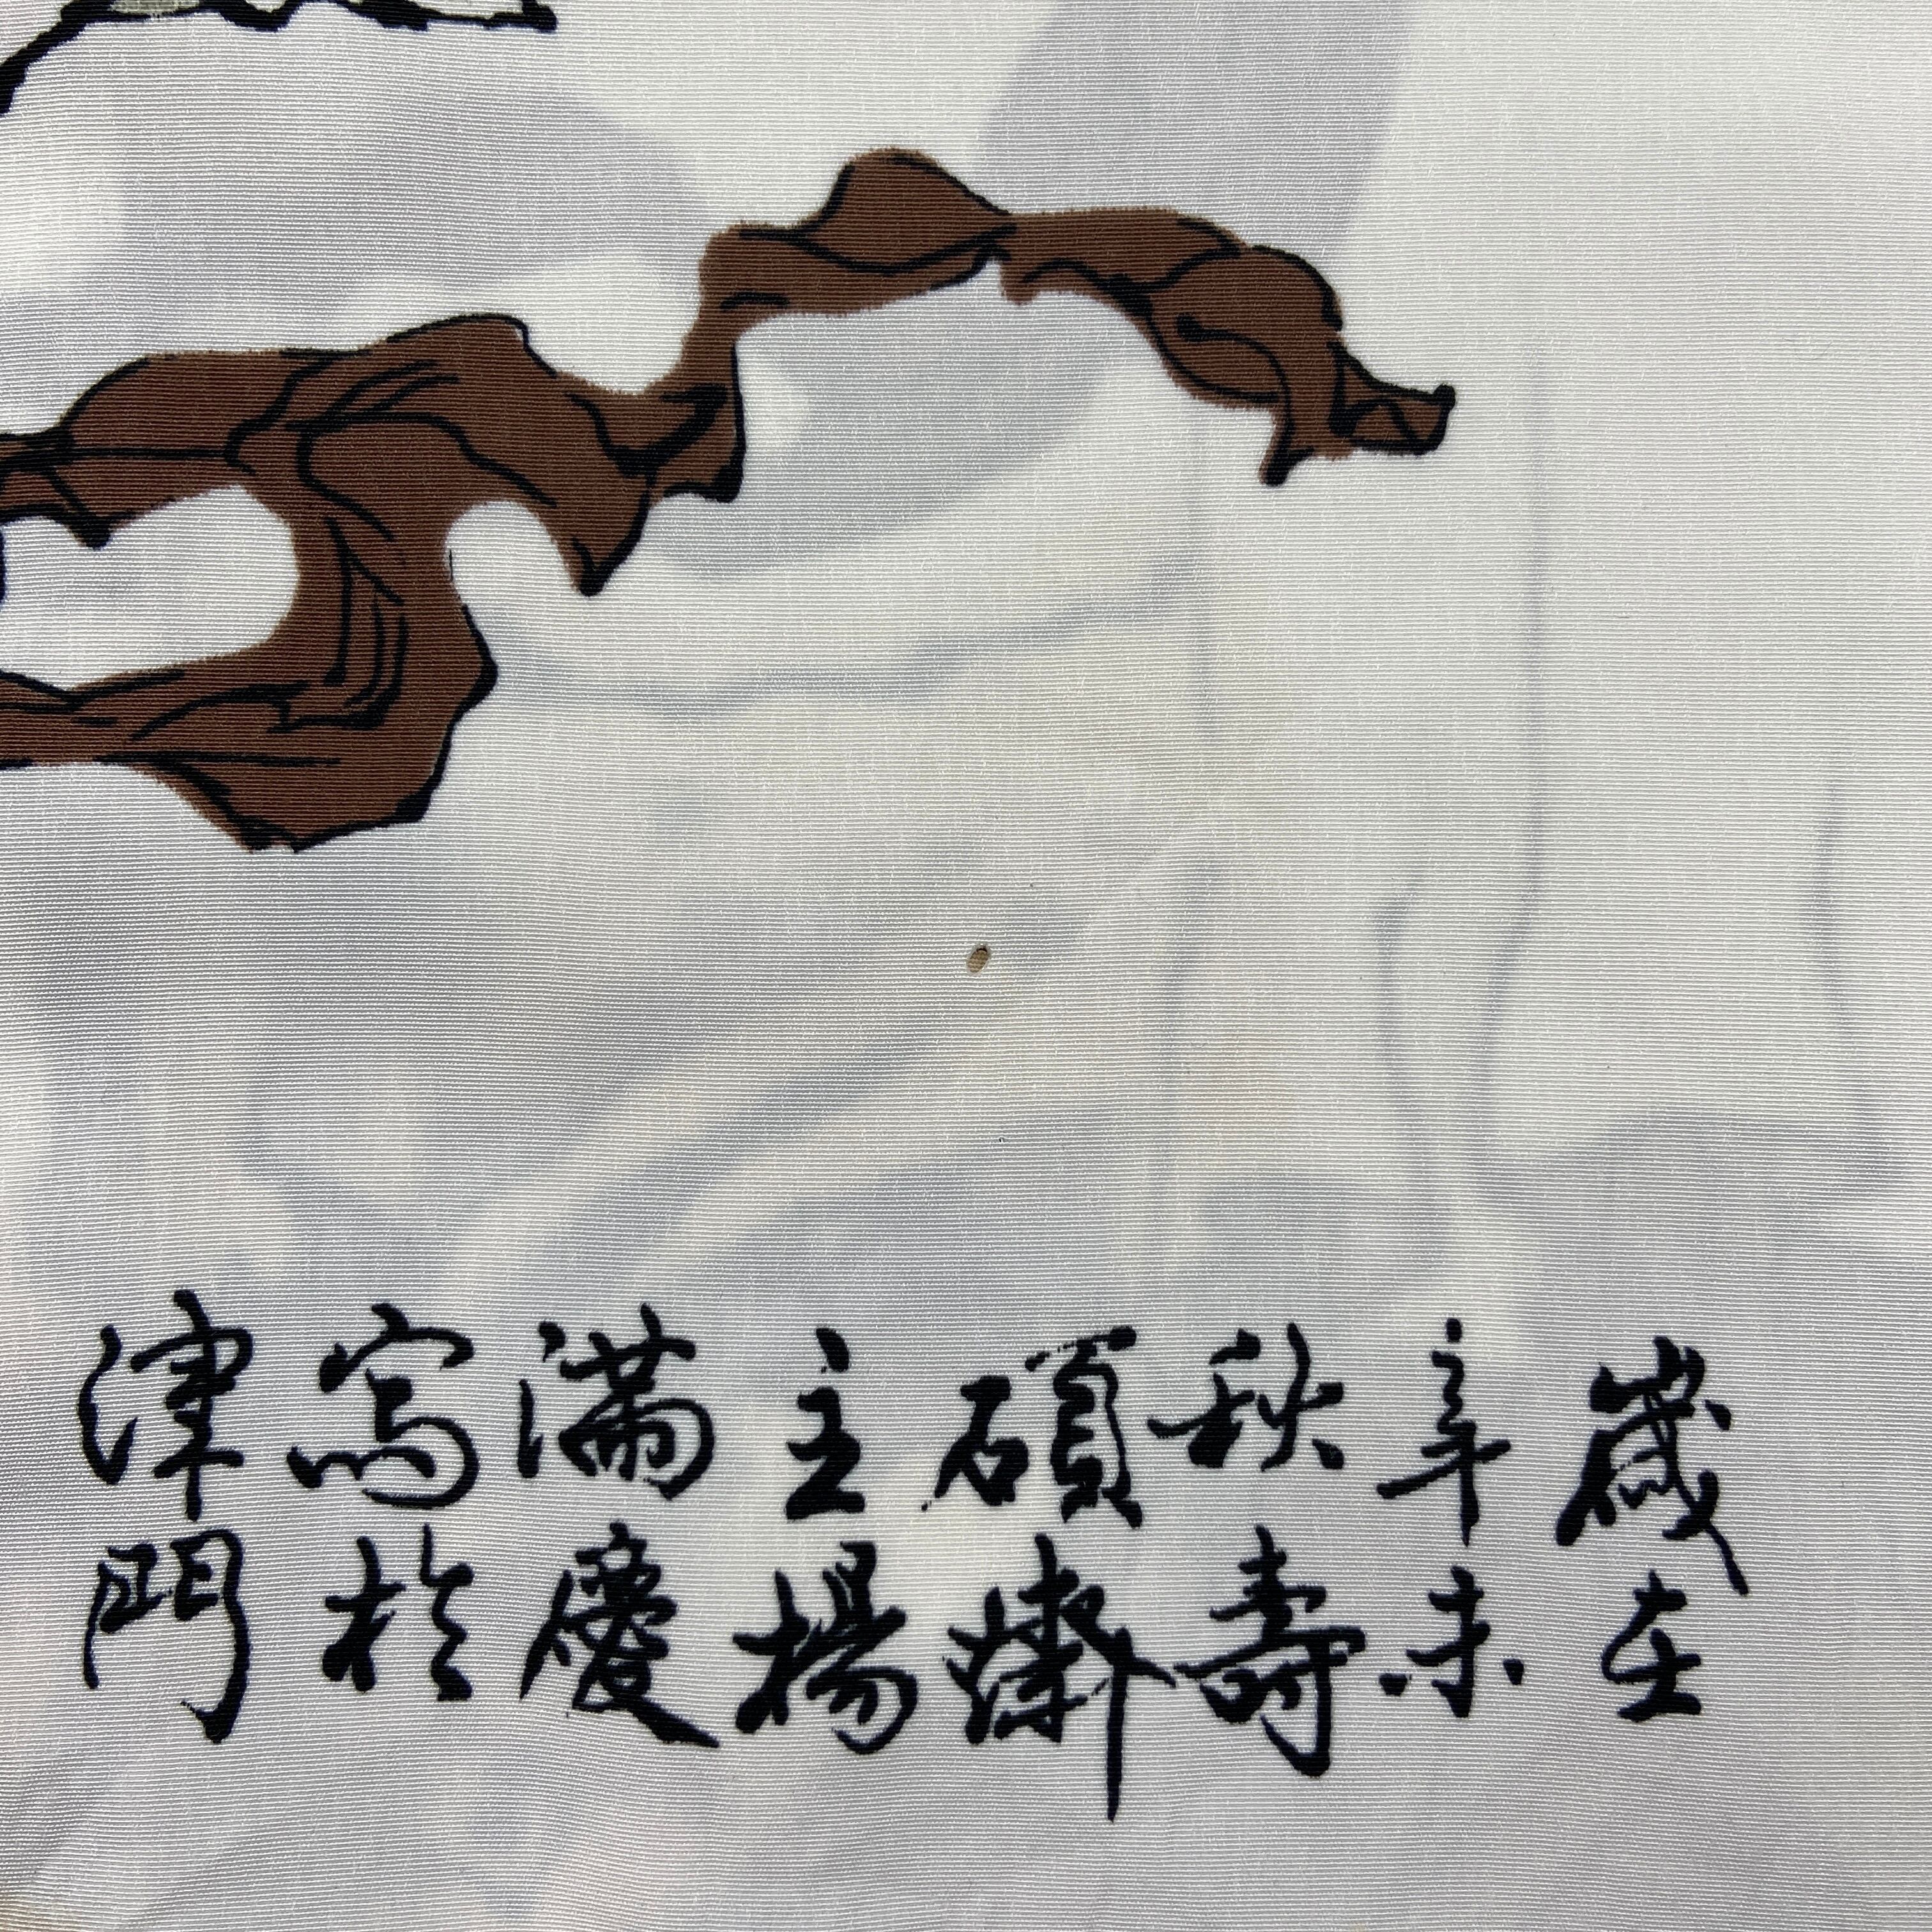 歲在
辛未
秋壽
碩
主楊
滿慶
寫於
津門